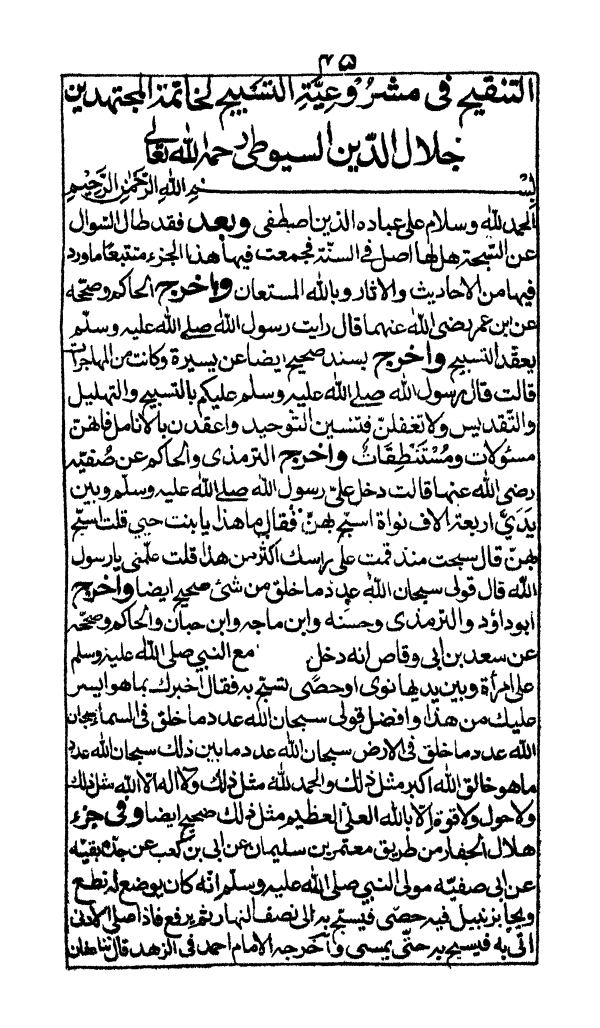 ٤٥
التنقيح فى مشرُوعِيَّةِ التسبيح لخاتمة المجتهدين
جلال الدّين السيوطى رحمه الله تعالى
بِسْــــــمِ اللهِ الرَّحْمٰنِ الرَّحِيْمِ
الحمد لله وسلام على عباده الذين اصطفى وبعد فقد طال السّوال
عن السّبحة هل لها اصل فى السنّة فجمعت فيها هذا الجزء متتبعًا ما ورد
فيها من الاحاديث والاثار وبالله المستعان واخرج الحاكم وصحّحه
عن ابن عمر رضى الله عنهما قال رايت رسول الله صلى الله عليه وسلّم
يعقد التسبيح واخرج بسند صحيح ايضا عن يسيرة وكانت من المهاجرات
قالت قال رسول الله صلى الله عليه وسلم عليكم بالتسبيح والتهليل
والتّقديس ولا تغفلنّ فتنسين التّوحيد واعقدن بالانامل فانهنّ
مسئولات ومُسْتَنْطِقَات واخرج الترمذى والحاكم عن صَفيّه
رضى الله عنها قالت دخل علىّ رسول الله صلى الله عليه وسلّم وبين
يَدَيّ اربعة الاف نواة اسبّح بهنّ فقال ما هذا يا بنت حيى قلت اسبّح
بهنّ قال سبحت منذ قمت على راسك اكثر من هذا قلت علّمنى يا رسول
الله قال قولى سبحان الله عدد ما خلق من شئ صحيح ايضا واخرج
ابو داؤد والترمذى وحسّنه وابن ماجه وابن حبان والحاكم وصحّحه
عن سعد بن ابى وقاص انه دخل مع النبي صلى الله عليه وسلم
على امرأة وبين يديها نوى او حصًى تسبّح به فقال اخبرك بما هو ايسر
عليك من هذا وافضل قولى سبحان الله عدد ما خلق فى السماء سبحان
الله عدد ما خلق فى الارض سبحان الله عدد ما بين ذلك سبحان الله عدد
ما هو خالق الله اكبر مثل ذلك والحمد لله مثل ذلك ولا اله الّا الله مثل ذلك
ولا حول ولا قوة الّا بالله العلىّ العظيم مثل ذلك صحيح ايضا وفى جزء
هلال الحفار من طريق معتمر بن سليمان عن ابى بن كعب عن جدّه بقيّه
عن ابى صفيّه مولى النبي صلى الله عليه وسلّم انّه كان يوضع له نطع
ويجا بزنبيل فيه حصًى فيسبّح به الى نصف النهار ثم يرفع فاذا صلى الاولى
اتى به فيسبح به حتّى يمسى واخرجه الامام احمد فى الزهد قال ثنا عفان